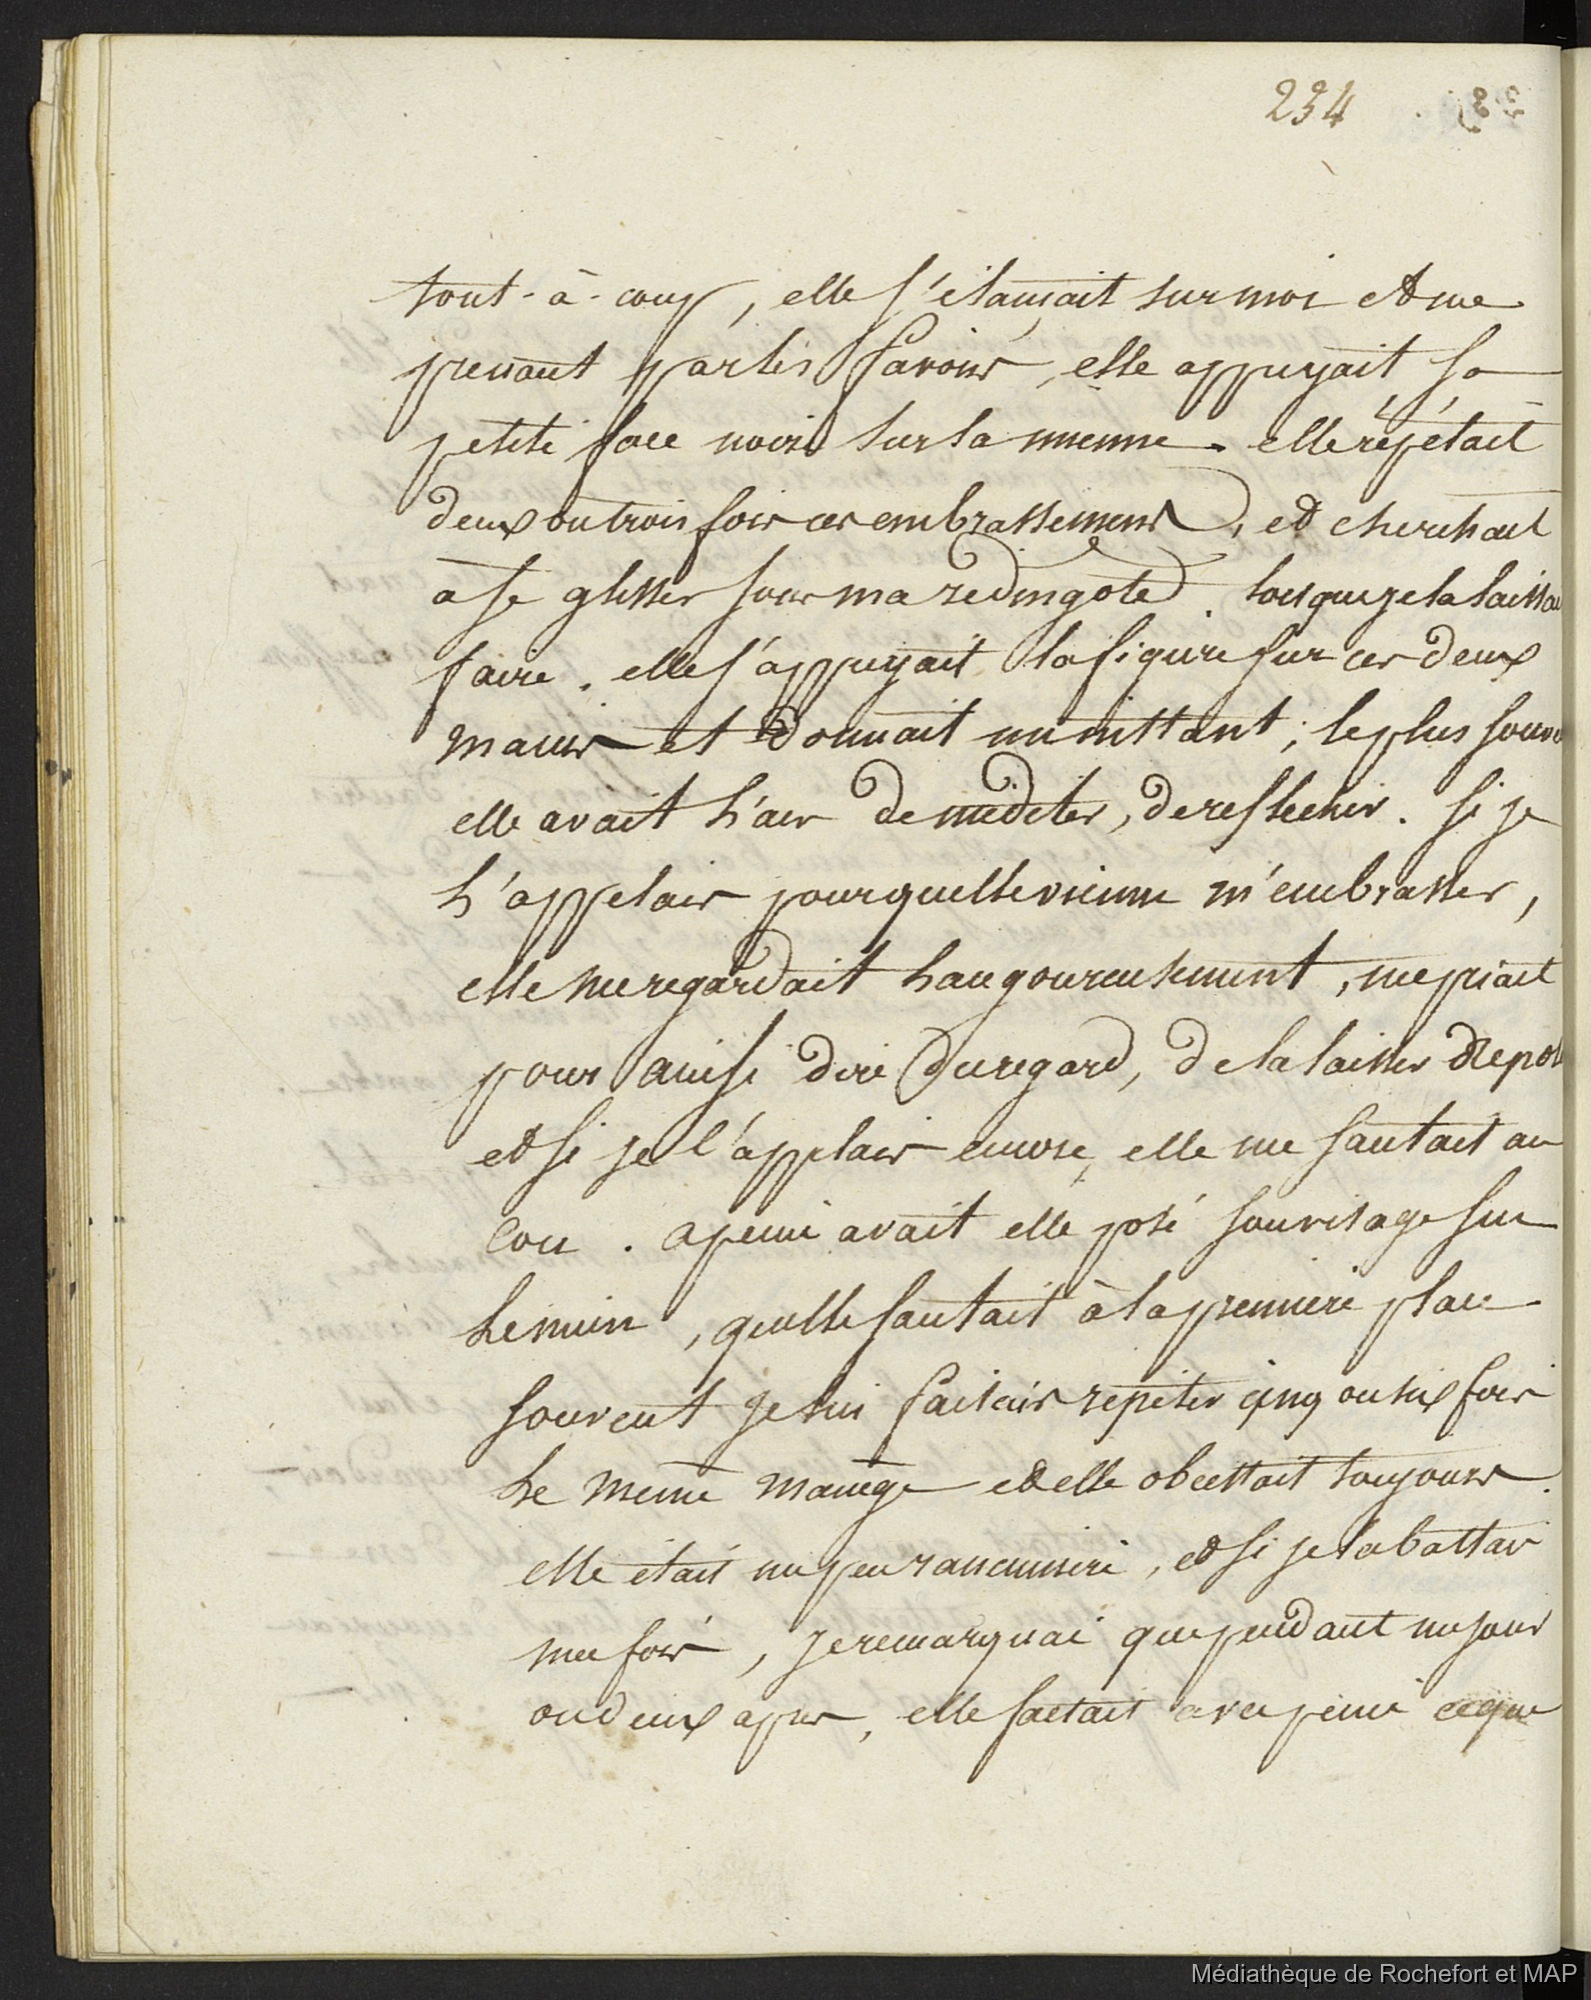 234
tout-à-coup, elle s'élançait sur moi et me
prenant par les favoris, elle appuyait sa
petite face noire sur la mienne. elle répétait
deux ou trois fois ces embrassemens, et cherchait
à se glisser sous ma redingote. lorsque je la laissai
faire. elle s'appuyait la figure sur ces deux
mains et donnait un instant; le plus souve
elle avait l'air de mediter, de reflechir. si je
l'appelais pour quelle vienne m'embrasser,
elle me regardait langoureusement, me priait
pour ainsi dire du regard, de la laisser Repos
et si je l'applais encore, elle me sautait au
cou. apeine avait elle posé son visage sur
le mien, quelle sautait à la premiere place
souvent je lui faisais repeter cinq ou six fois
le meme manege et elle obeissait toujours.
elle était un peu rancuniere, et si je la battais
une fois, je remarquai que pendant un jour
ou deux apres, elle faisait avec peine ce que
Médiathèque de Rochefort et MAP